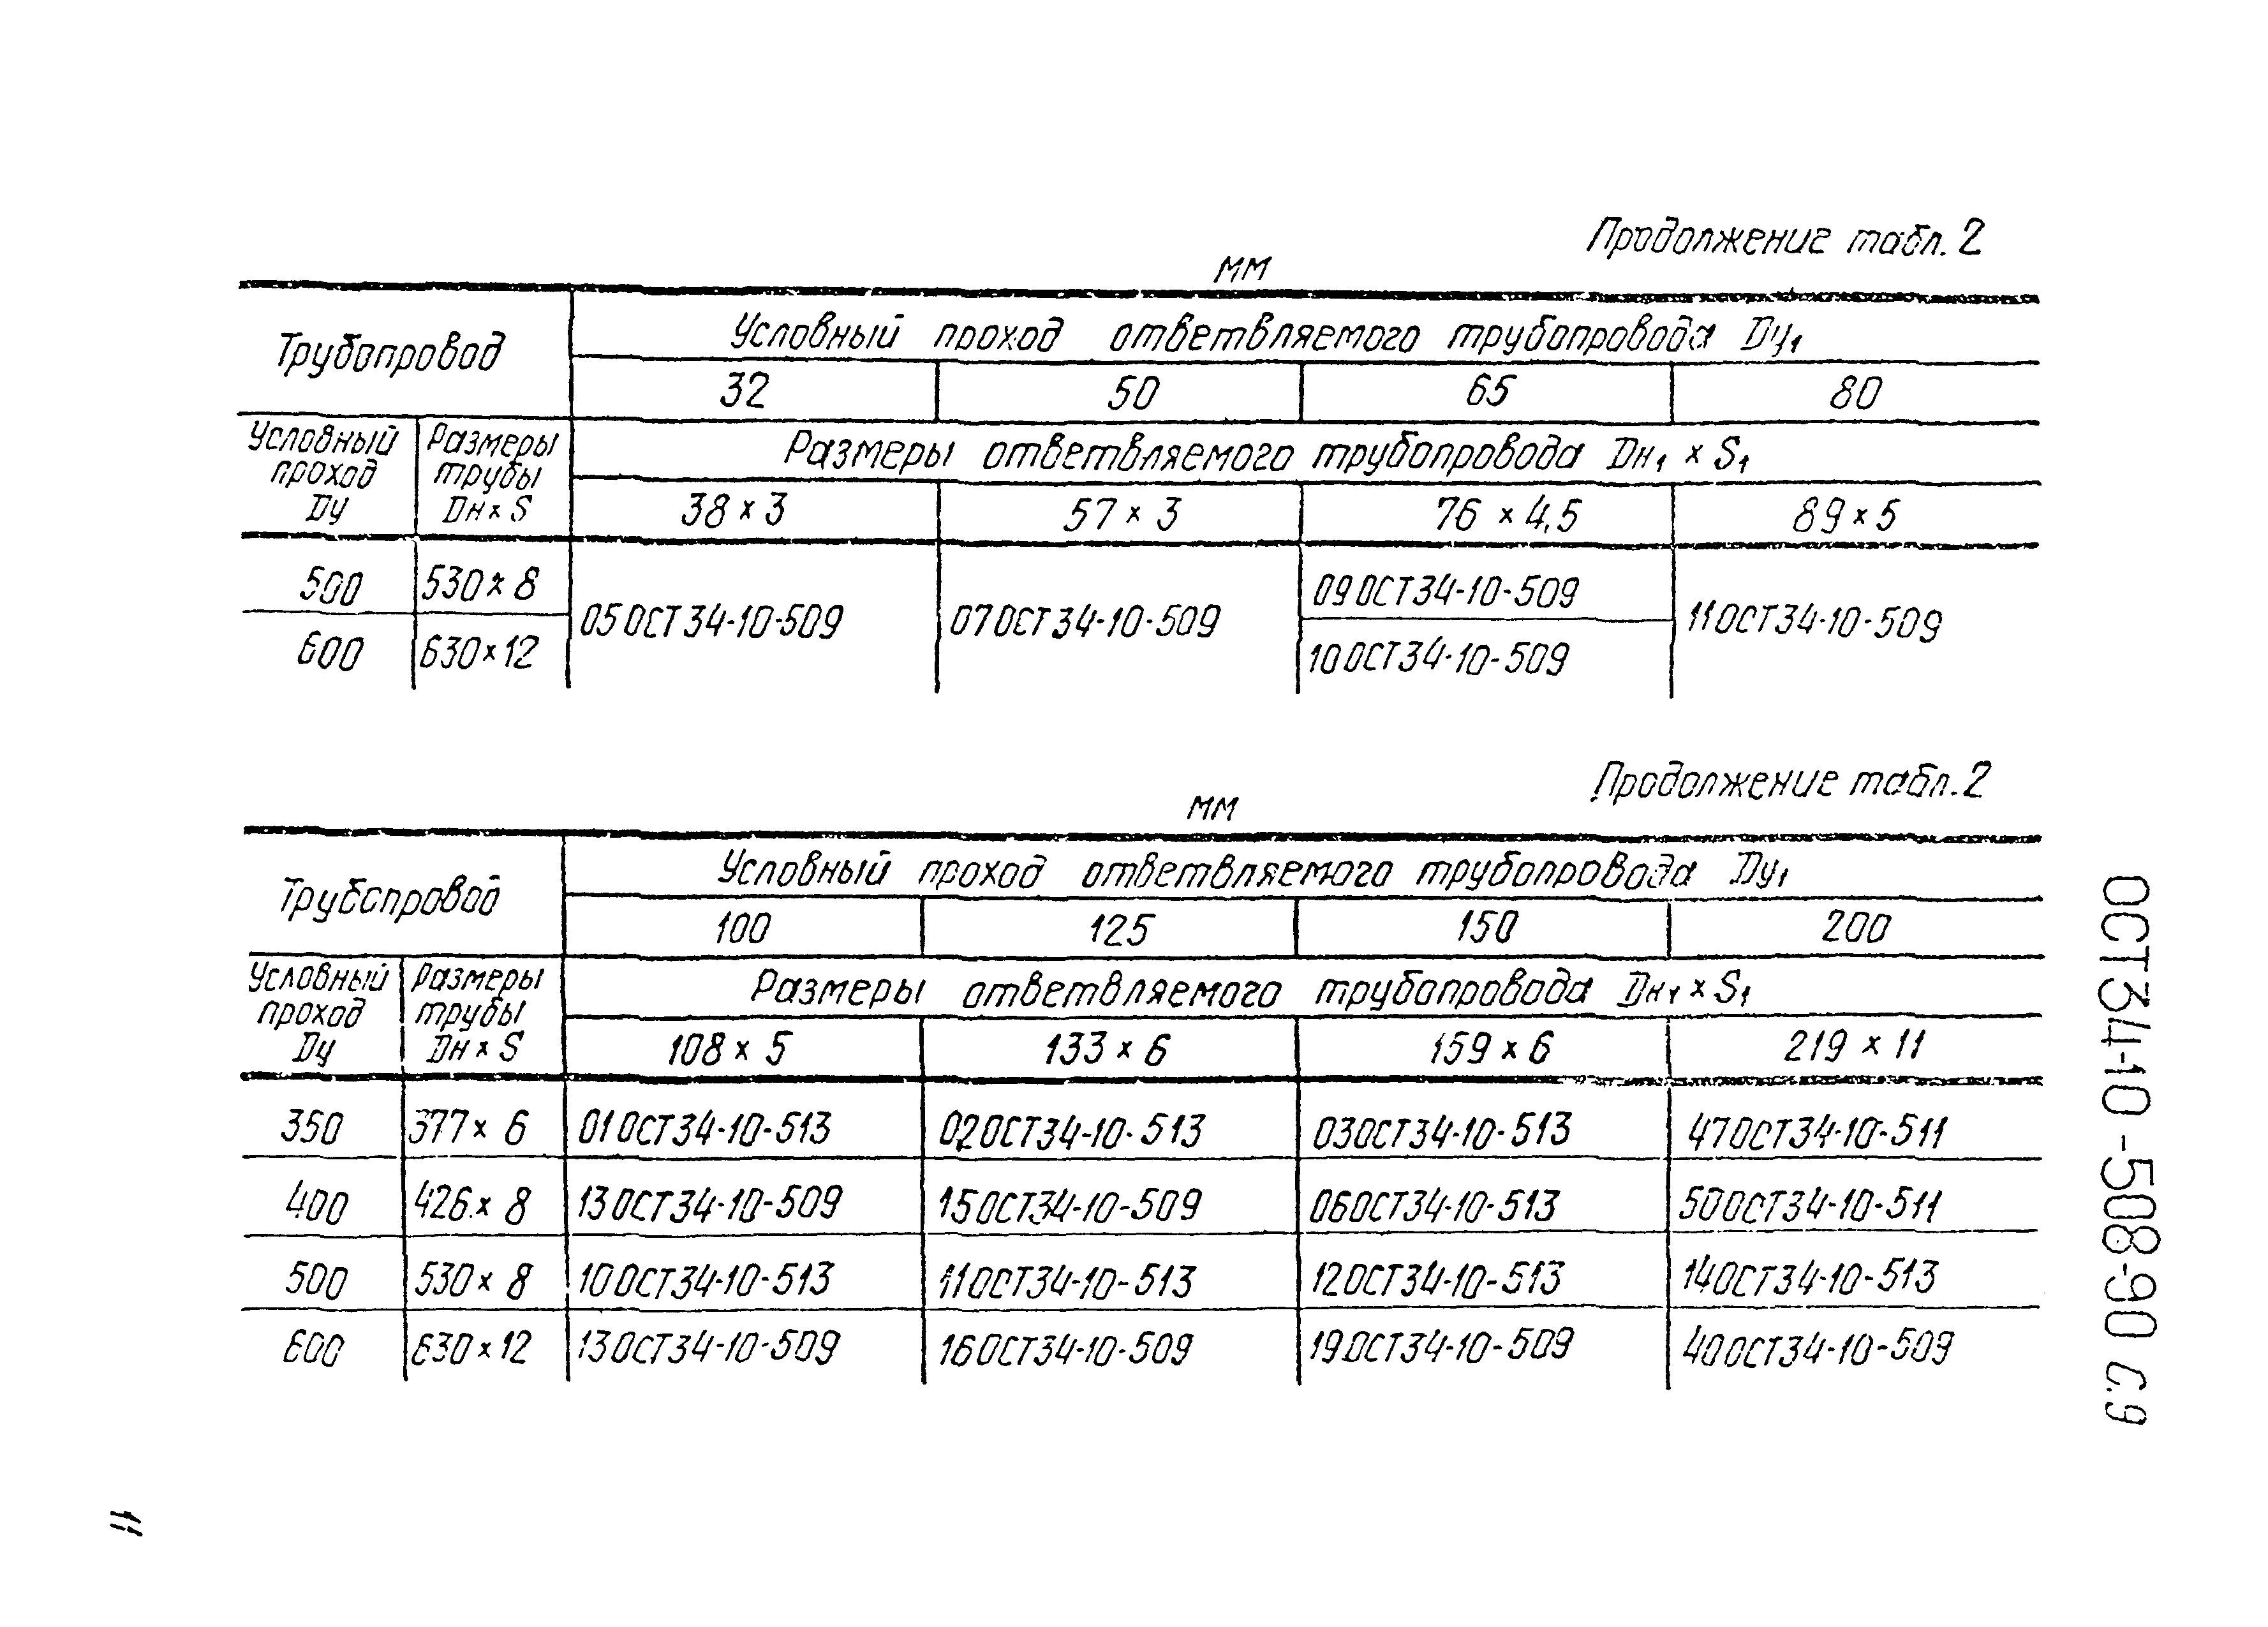 Продолжение табл. 2
мм
Трубопровод
Условный проход ответвляемого трубопровода Dу₁
32 50 65 80
Условный проход Dу
Размеры трубы Dн × S
Размеры ответвляемого трубопровода Dн₁ × S₁
38 × 3 57 × 3 76 × 4,5 89 × 5
500 530 × 8 05 ОСТ 34-10-509 07 ОСТ 34-10-509 09 ОСТ 34-10-509 11 ОСТ 34-10-509
600 630 × 12 10 ОСТ 34-10-509
Продолжение табл. 2
мм
Трубопровод
Условный проход ответвляемого трубопровода Dу₁
100 125 150 200
Условный проход Dу
Размеры трубы Dн × S
Размеры ответвляемого трубопровода Dн₁ × S₁
108 × 5 133 × 6 159 × 6 219 × 11
350 377 × 6 01 ОСТ 34-10-513 02 ОСТ 34-10-513 03 ОСТ 34-10-513 47 ОСТ 34-10-511
400 426 × 8 13 ОСТ 34-10-509 15 ОСТ 34-10-509 06 ОСТ 34-10-513 50 ОСТ 34-10-511
500 530 × 8 10 ОСТ 34-10-513 11 ОСТ 34-10-513 12 ОСТ 34-10-513 14 ОСТ 34-10-513
600 630 × 12 13 ОСТ 34-10-509 16 ОСТ 34-10-509 19 ОСТ 34-10-509 40 ОСТ 34-10-509
ОСТ 34-10-508-90 С. 9
11